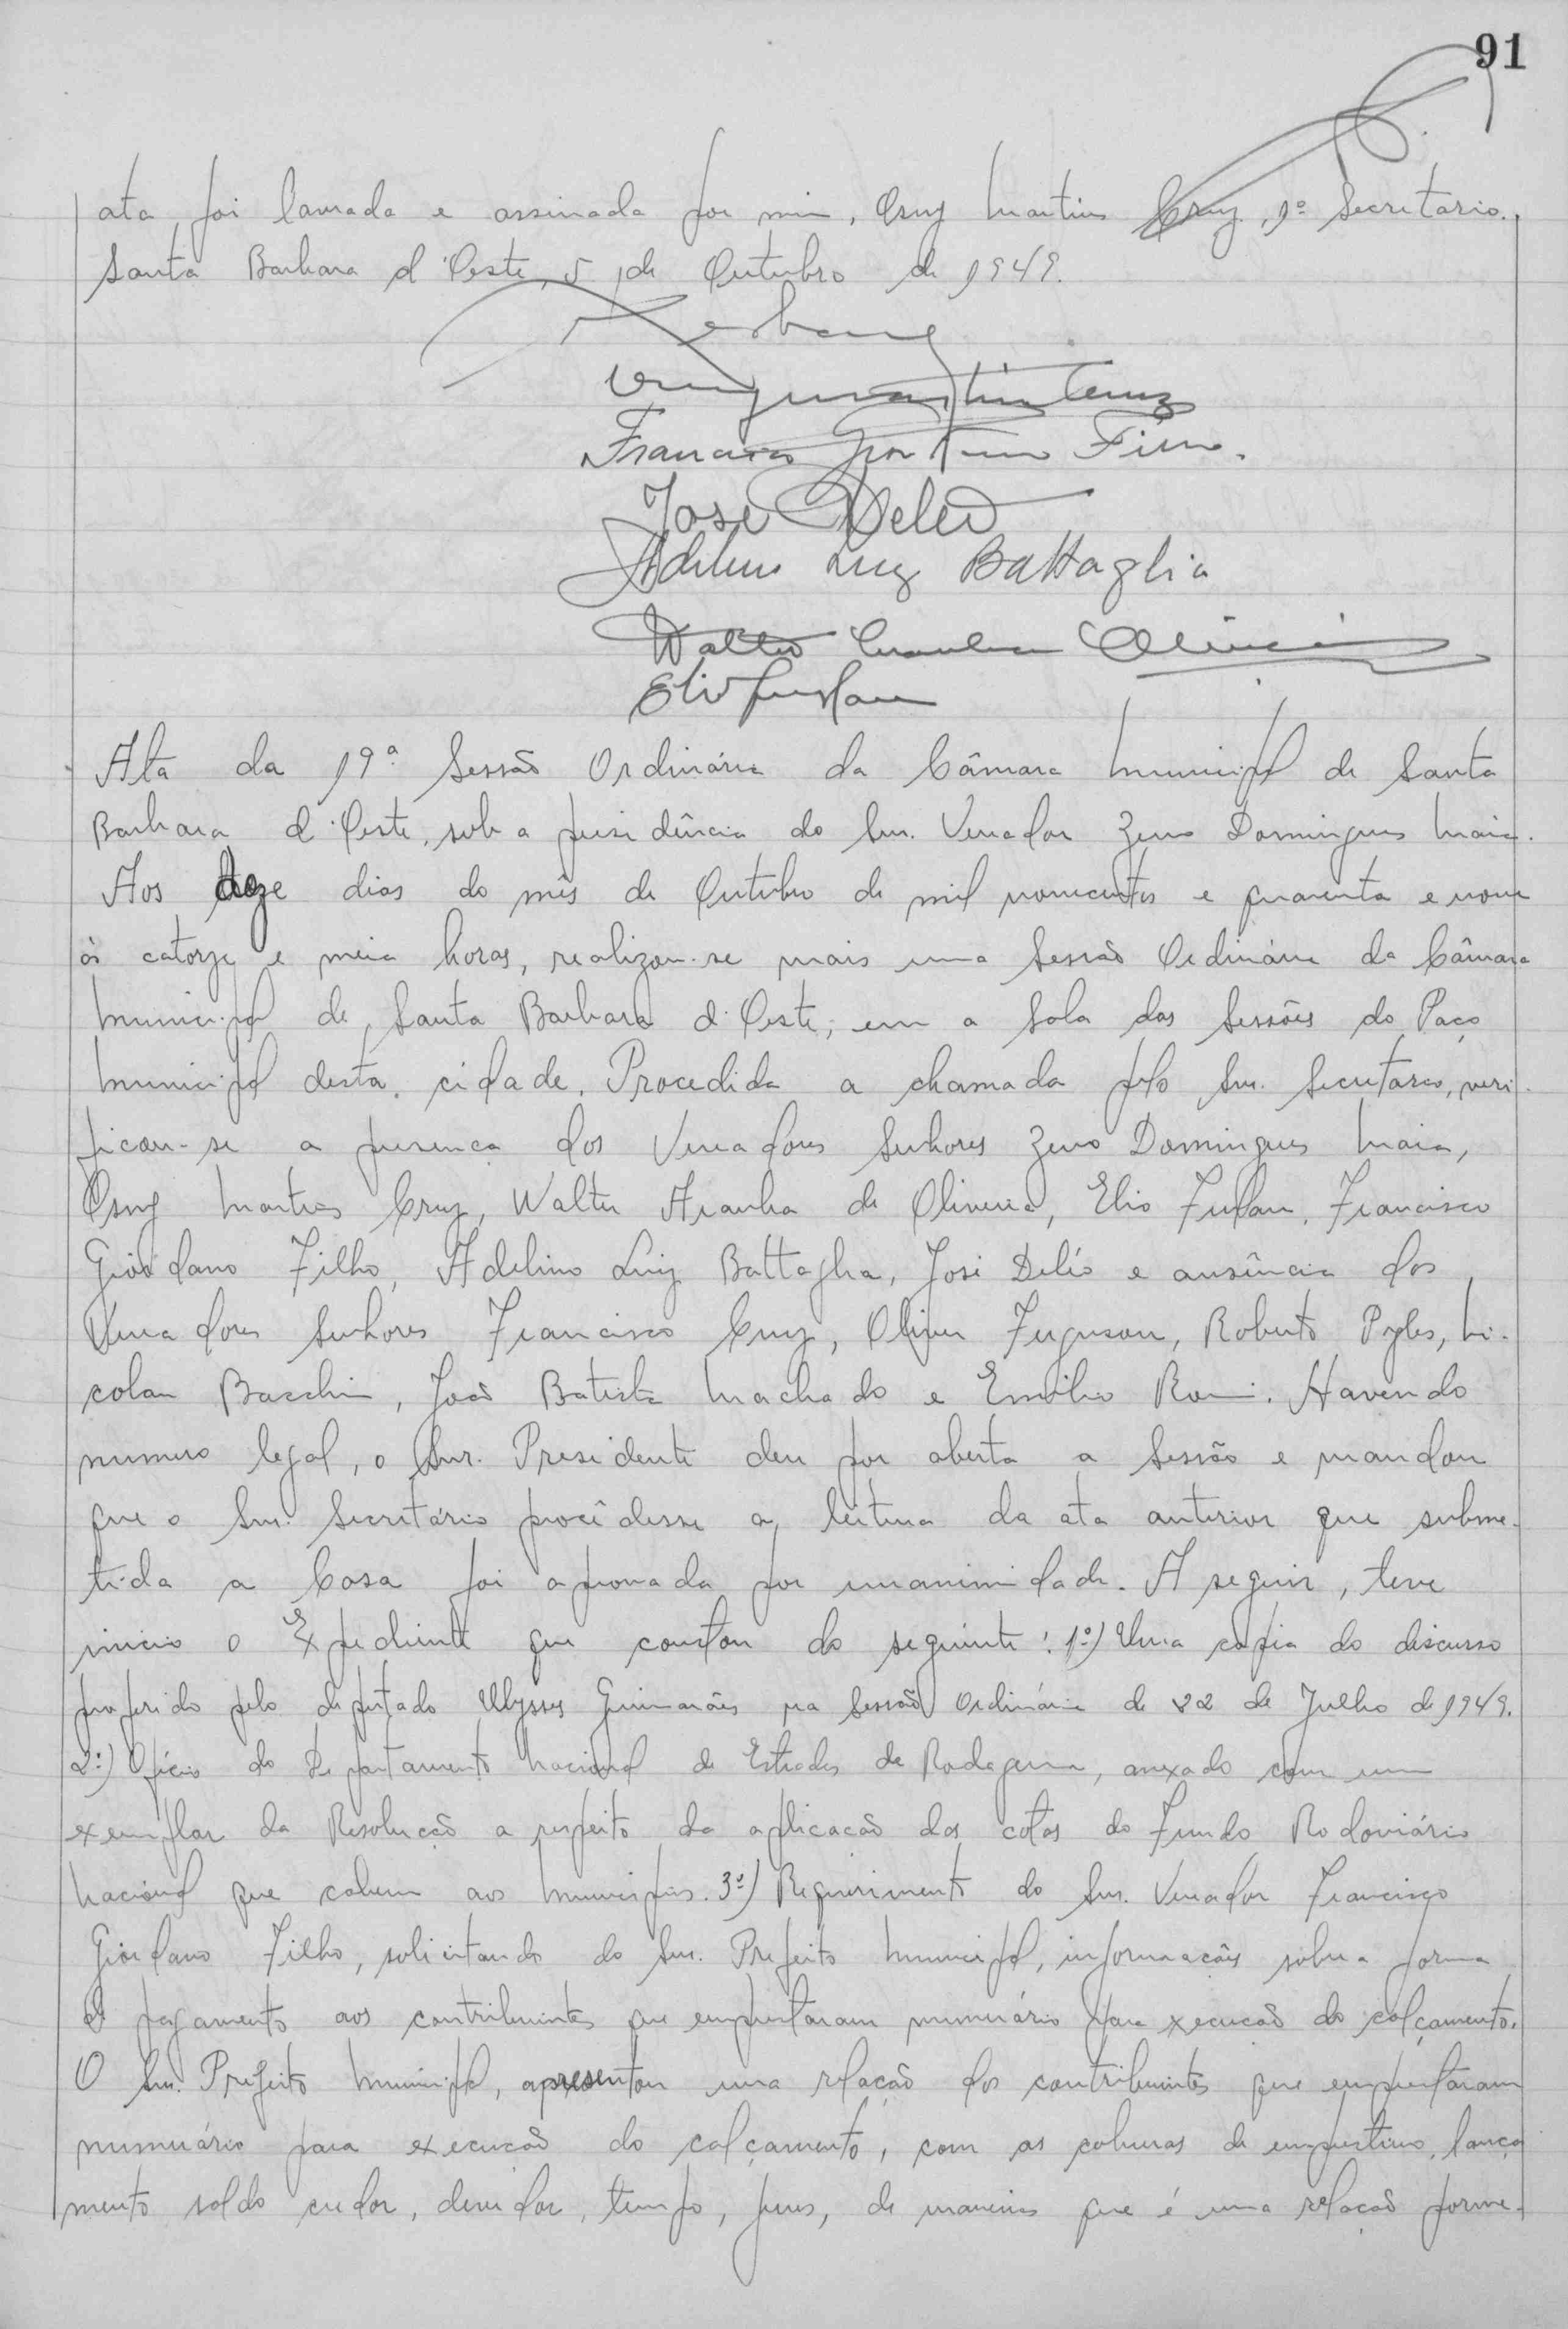 91
ata, foi lavrada e assinada por mim, Osny Martins Cruz, 1º Secretario.
Santa Barbara d'Oeste, 5 de Outubro de 1949.
Francisco Giordano Filho.
José Deleo
Adelino Luiz Battaglia
Walter Aranha Oliveira
Elio Furlan
Ata da 19ª Sessão Ordinária da Câmara Municipal de Santa
Barbara d'Oeste, sob a presidência do Snr. Vereador Zeno Domingues Maia.
Aos doze dias do mês de Outubro de mil novecentos e quarenta e nove
às catorze e meia horas, realizou-se mais uma Sessão Ordinária da Câmara
Municipal de Santa Barbara d'Oeste, em a Sala das Sessões do Paço
Municipal desta cidade. Procedida a chamada pelo Snr. Secretario, veri-
ficou-se a presença dos Vereadores Senhores Zeno Domingues Maia,
Osny Martins Cruz, Walter Aranha de Oliveira, Elio Furlan, Francisco
Giordano Filho, Adelino Luiz Battaglia, José Deléo e ausência dos
Vereadores Senhores Francisco Cruz, Oliver Ferguson, Roberto Pyles, Ni-
colau Bacchin, João Batista Machado e Emilio Romi. Havendo
numero legal, o Snr. Presidente deu por aberta a Sessão e mandou
que o Snr. Secretário procêdesse a leitura da ata anterior que subme-
tida a Casa foi aprovada por unanimidade. A seguir, teve
inicio o Expediente que constou do seguinte: 1º) Uma copia do discurso
proferido pelo deputado Ulysses Guimarães na Sessão Ordinária de 22 de Julho de 1949.
2º) Oficio do Departamento Nacional de Estradas de Rodagem, anexado com um
exemplar da Resolução a respeito da aplicação das cotas do Fundo Rodoviário
Nacional que cabem aos Municipios. 3º) Requerimento do Snr. Vereador Francisco
Giordano Filho, solicitando do Snr. Prefeito Municipal, informações sobre a forma
de pagamento aos contribuintes que emprestaram numerário para execução do calçamento.
O Snr. Prefeito Municipal, apresentou uma relação dos contribuintes que emprestaram
numerário para execução do calçamento, com as colunas de emprestimo, lança
mento saldo credor, devedor, tempo, juros, de maneira que é uma relação porme-